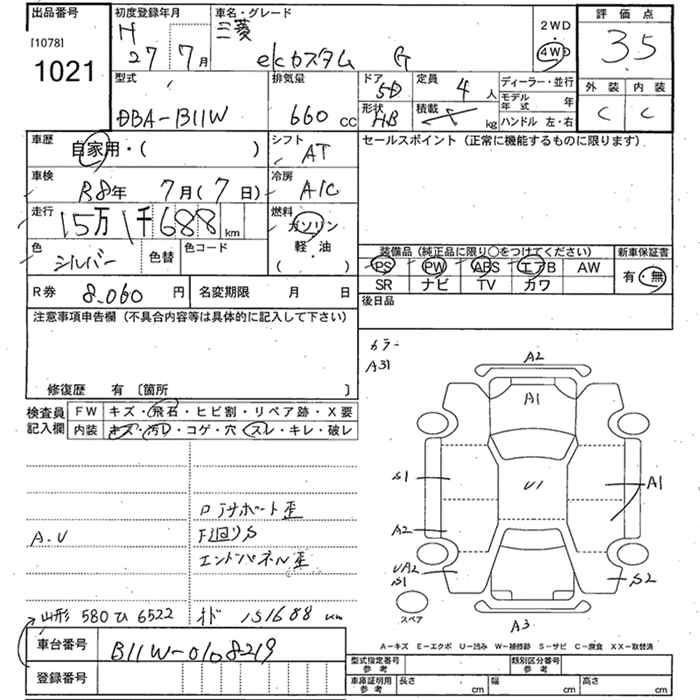 出品番号 初度登録年月 車名・グレード 2WD 評価点
[1078] H 三菱 4WD 3.5
1021 27 7月 ekカスタム G 外装 内装
型式 排気量 ドア 定員 ディーラー・並行 C C
5D 4人 モデル年式 年
DBA-B11W 660cc 形状 HB 積載 kg ハンドル 左・右
車歴 自家用・( ) シフト AT セールスポイント（正常に機能するものに限ります）
車検 R8年 7月(7日) 冷房 A/C
走行 15万1千688km 燃料 ガソリン
色 シルバー 色替 色コード 軽・油 ( )
装備品（純正品に限り○をつけてください） 新車保証書
PS PW ABS エアB AW 有・無
SR ナビ TV カワ
R券 8,060円 名変期限 月 日 後日品
注意事項申告欄（不具合内容等は具体的に記入して下さい）
カラー
A31
修復歴 有〔箇所 〕
検査員記入欄 FW キズ・飛石・ヒビ割・リペア跡・X要
内装 キズ・汚レ・コゲ・穴・スレ・キレ・破レ
A2
A1
S1 U1 A1
A2
UA2
S1 S2
スペア
A3
A.U
ロアサポート歪
F廻りS
エンドパネル歪
山形 580ひ6522 オド 151688km
車台番号 B11W-0108219
登録番号
A－キズ E－エクボ U－凹み W－補修跡 S－サビ C－腐食 XX－取替済
型式指定番号 参考 類別区分番号 参考
車庫証明用 参考 長さ cm 幅 cm 高さ cm